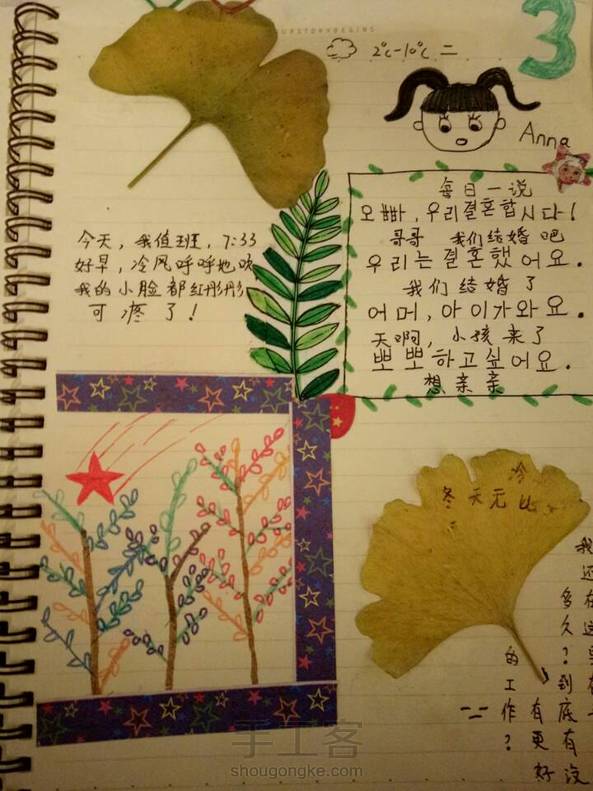 2℃-10℃ 二
3
Anna
每日一说
오빠,우리결혼합시다!
哥哥 我们结婚吧
우리는결혼했어요.
我们结婚了
어머,아이가와요.
天啊,小孩来了
뽀뽀하고싶어요.
想亲亲
今天,我值班,7:33
好早,冷风呼呼地吹
我的小脸都红彤彤
可疼了!
冷
冬天无比
我
还
多在
久这
的 ?
工 到在
作有底一
?更有
好没
手工客
shougongke.com